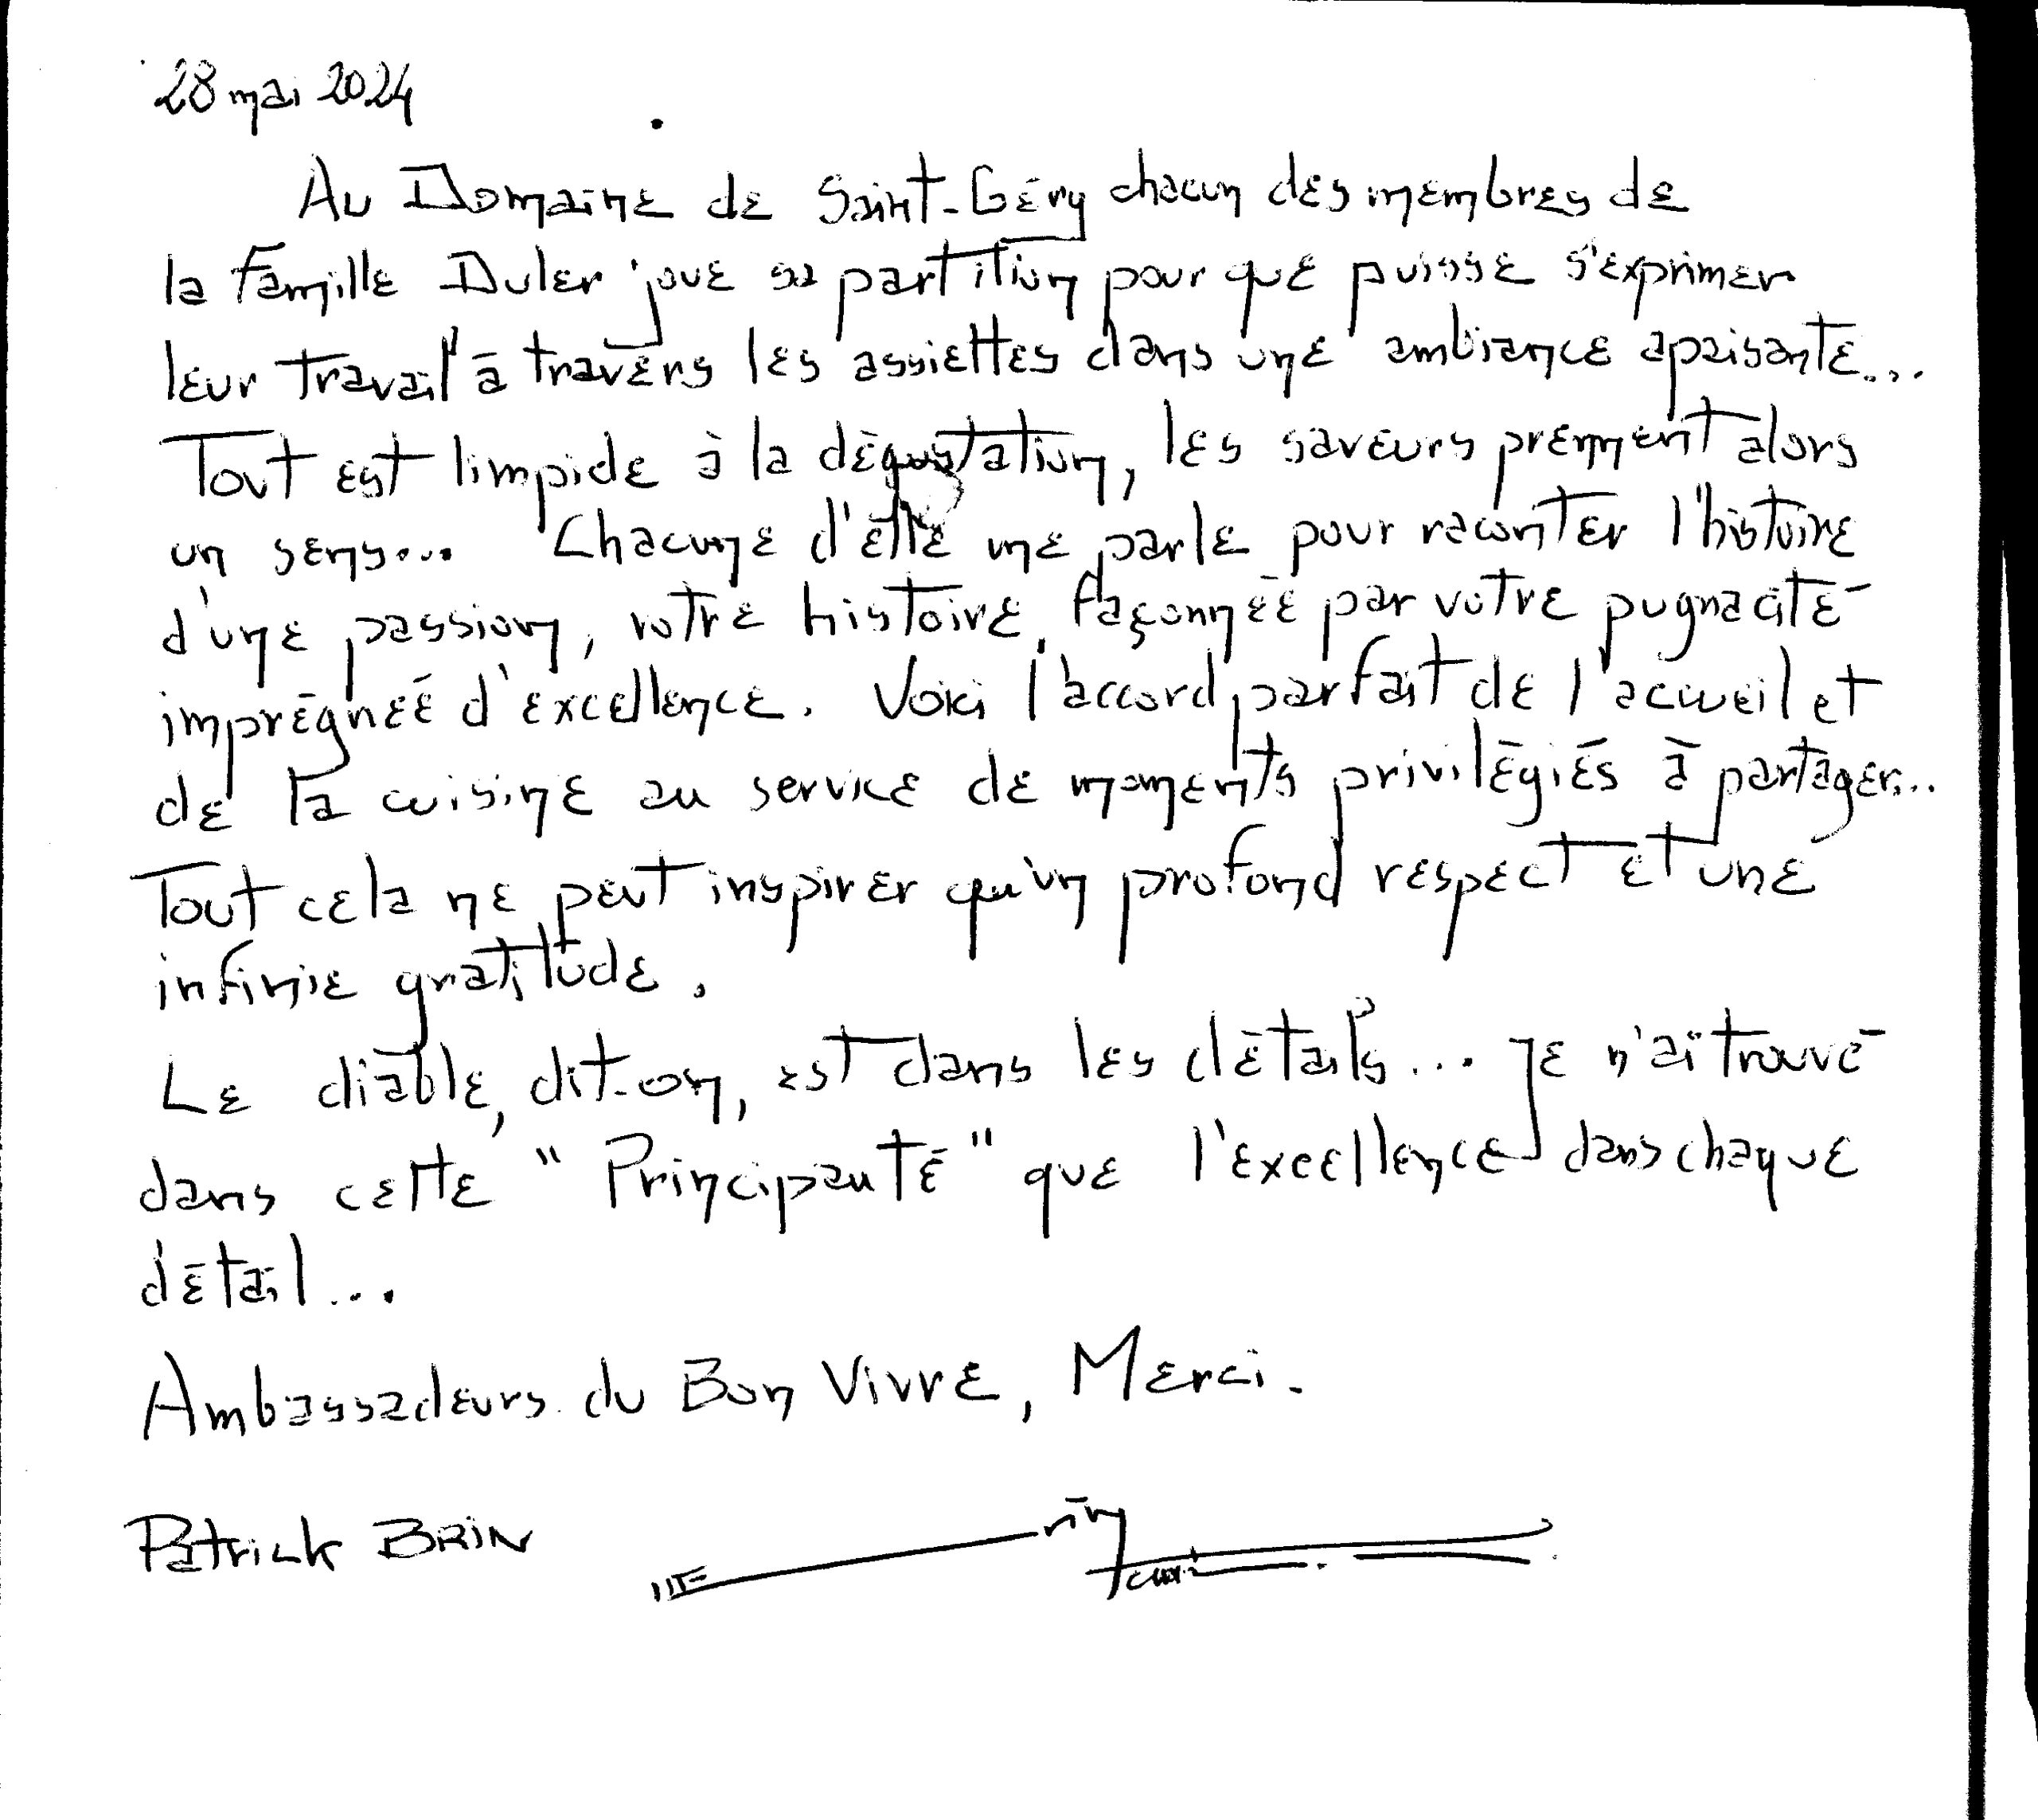 28 mai 2024
Au Domaine de Saint-Géry chacun des membres de
la famille Duler joue sa partition pour que puisse s'exprimer
leur travail à travers les assiettes dans une ambiance apaisante...
Tout est limpide à la dégustation, les saveurs prennent alors
un sens... Chacune d'elle me parle pour raconter l'histoire
d'une passion, votre histoire, façonnée par votre pugnacité
imprégnée d'excellence. Voici l'accord parfait de l'accueil et
de la cuisine au service de moments privilégiés à partager...
Tout cela ne peut inspirer qu'un profond respect et une
infinie gratitude.
Le diable, dit-on, est dans les détails... Je n'ai trouvé
dans cette "Principauté" que l'excellence dans chaque
détail...
Ambassadeurs du Bon Vivre, Merci.
Patrick BRIN